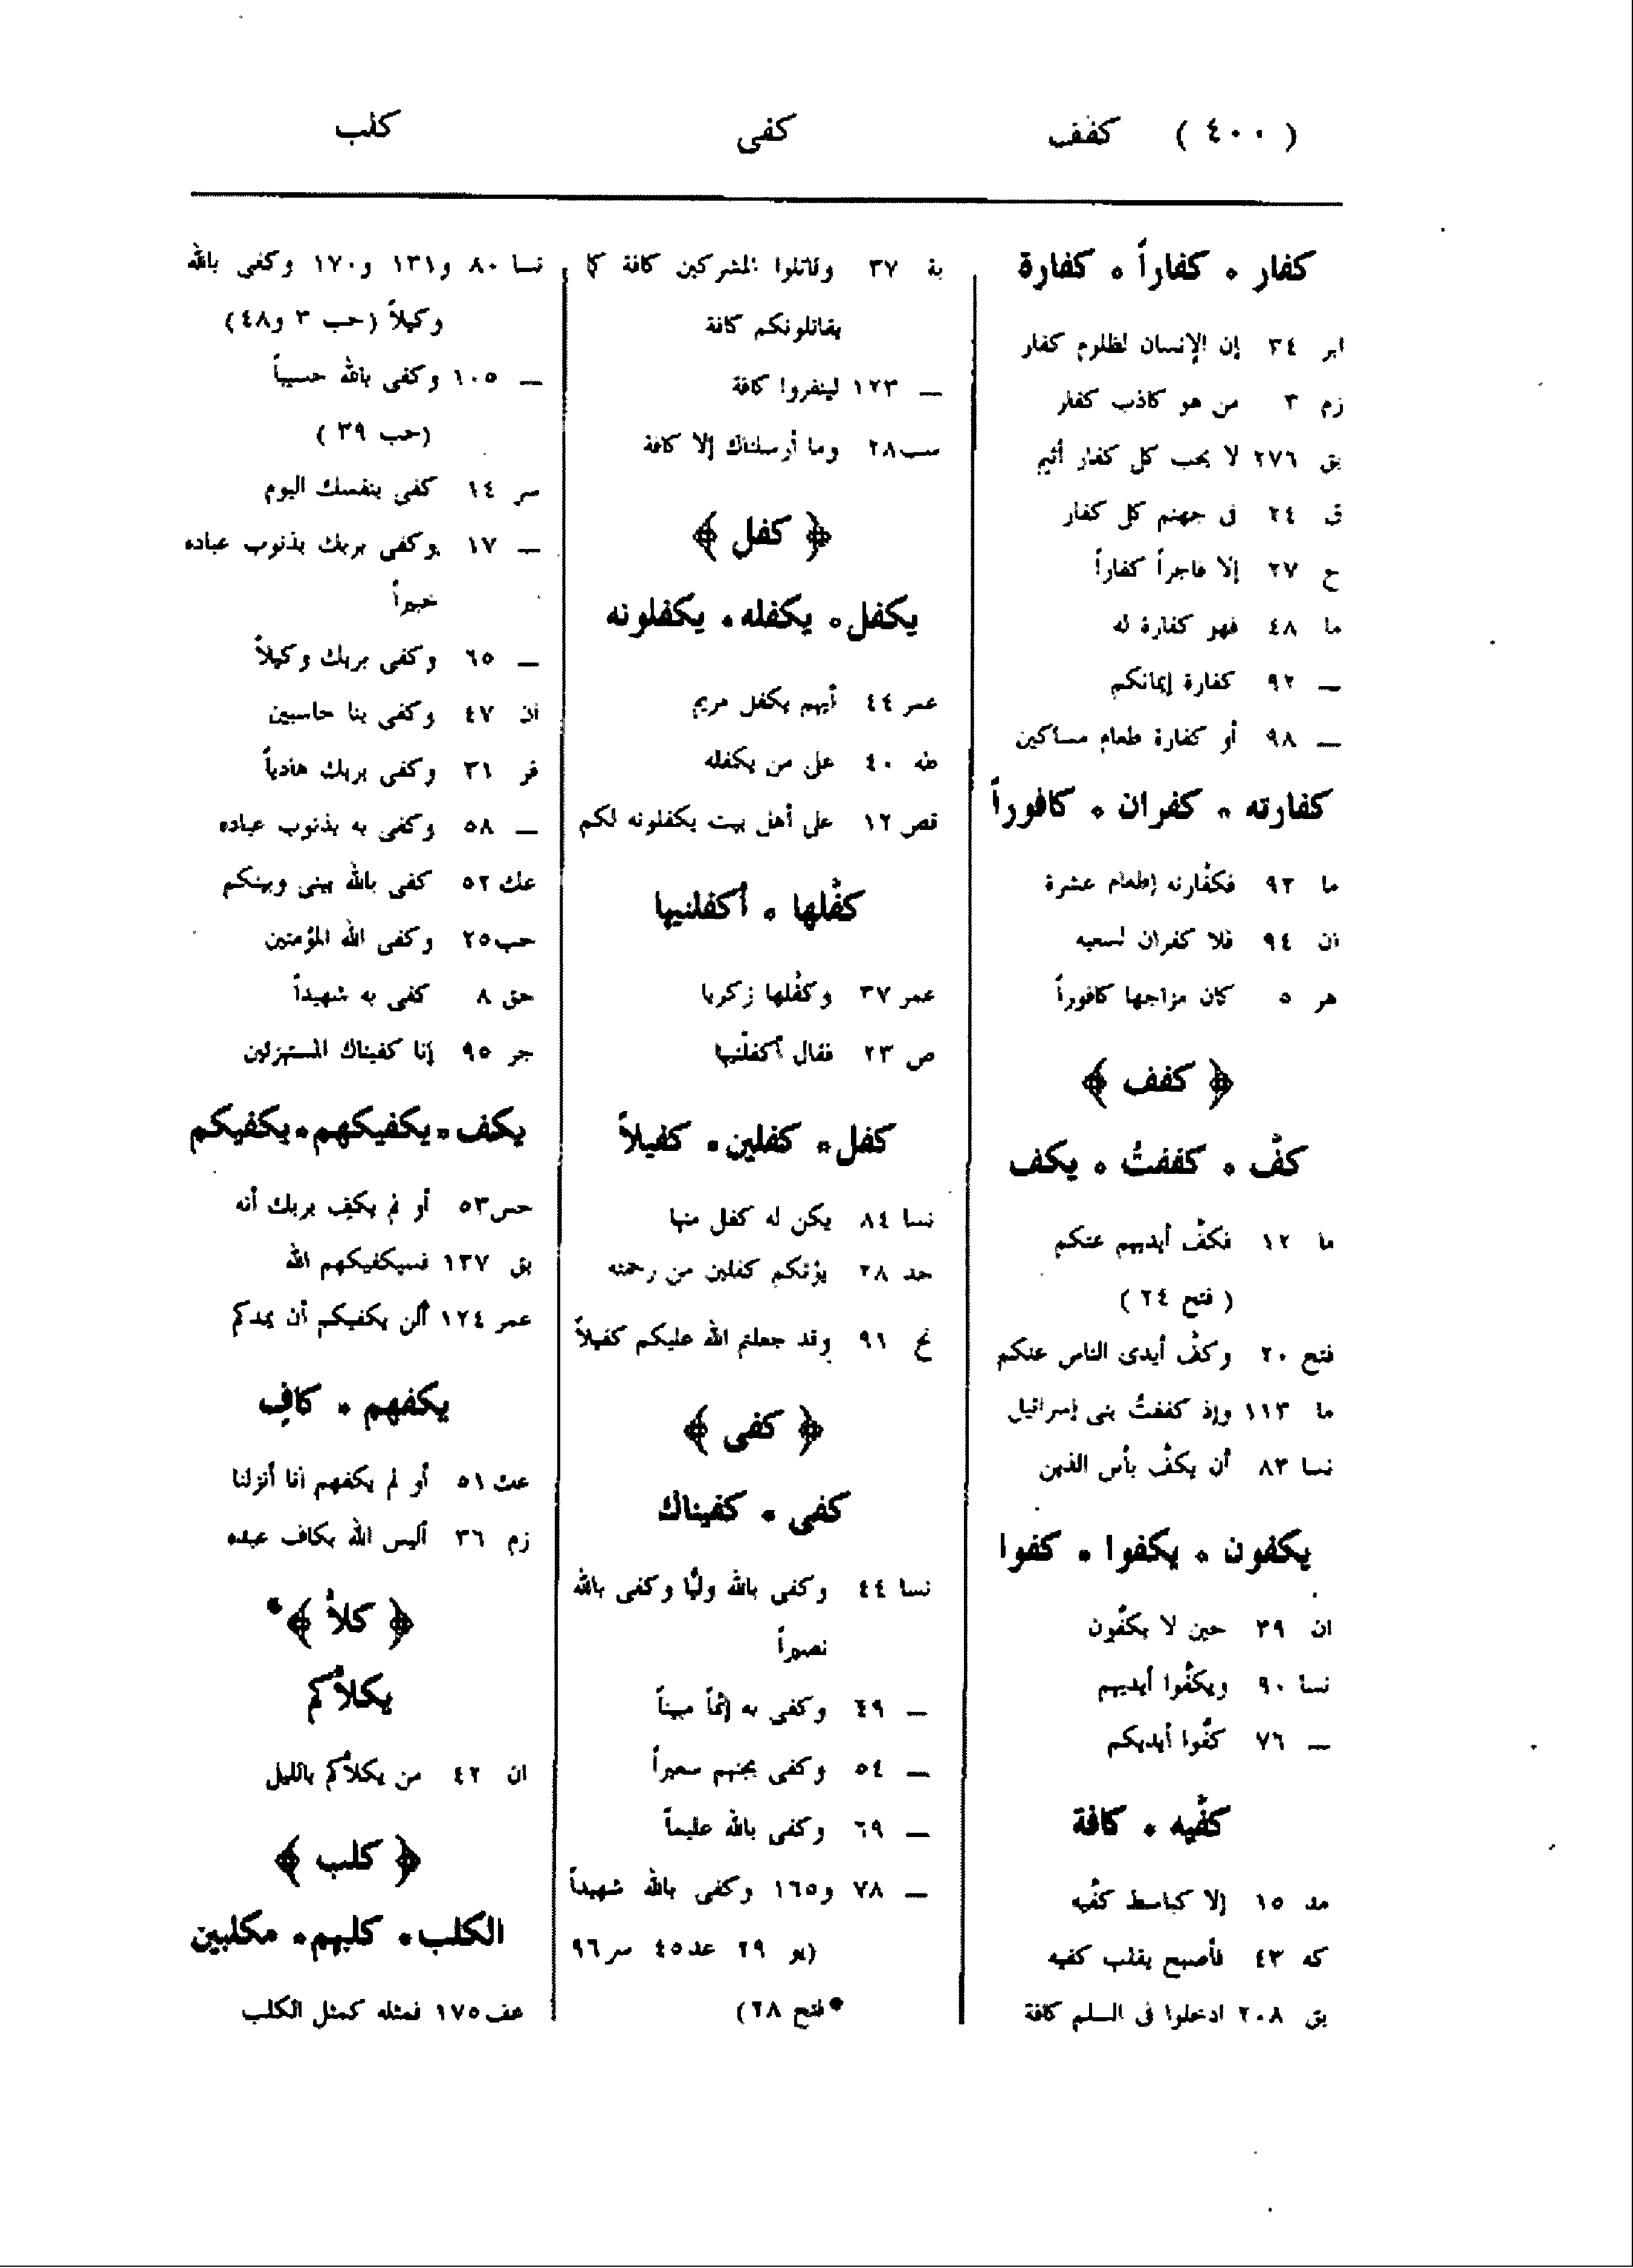 ( ٤٠٠ ) كفف كفى كلب
كفار ٠ كفاراً ٠ كفارة
ابر ٣٤ إن الإنسان لظلوم كفار
زم ٣ من هو كاذب كفار
بق ٢٧٦ لا يحب كل كفار أثيم
ق ٢٤ فى جهنم كل كفار
ح ٢٧ إلا فاجراً كفاراً
ما ٤٨ فهو كفارة له
ــ ٩٢ كفارة إيمانكم
ــ ٩٨ أو كفارة طعام مساكين
كفارته ٠ كفران ٠ كافوراً
ما ٩٢ فكفّارته إطعام عشرة
ان ٩٤ فلا كفران لسعيه
هر ٥ كان مزاجها كافوراً
﴿ كفف ﴾
كفّ ٠ كففتُ ٠ يكف
ما ١٢ فكفّ أيديهم عنكم
( فتح ٢٤ )
فتح ٢٠ وكفّ أيدى الناس عنكم
ما ١١٣ وإذ كففتُ بنى إسرائيل
نسا ٨٣ أن يكفّ بأس الذين
يكفون ٠ يكفوا ٠ كفوا
ان ٣٩ حين لا يكفّون
نسا ٩٠ ويكفّوا أيديهم
ــ ٧٦ كفّوا أيديكم
كفّيه ٠ كافة
مد ١٥ إلا كباسط كفّيه
كه ٤٣ فأصبح يقلب كفيه
بق ٢٠٨ ادخلوا فى السلم كافة
بة ٣٧ وقاتلوا المشركين كافة كما
يقاتلونكم كافة
ــ ١٢٣ لينفروا كافة
سب ٢٨ وما أرسلناك إلا كافة
﴿ كفل ﴾
يكفل ٠ يكفله ٠ يكفلونه
عمر ٤٤ أيهم يكفل مريم
طه ٤٠ على من يكفله
قص ١٢ على أهل بيت يكفلونه لكم
كفّلها ٠ أكفلنيها
عمر ٣٧ وكفّلها زكريا
ص ٢٣ فقال أكفلنيها
كفل ٠ كفلين ٠ كفيلاً
نسا ٨٤ يكن له كفل منها
حد ٢٨ يؤتكم كفلين من رحمته
نح ٩١ وقد جعلتم الله عليكم كفيلاً
﴿ كفى ﴾
كفى ٠ كفيناك
نسا ٤٤ وكفى بالله وليًّا وكفى بالله
نصيراً
ــ ٤٩ وكفى به إثماً مبيناً
ــ ٥٤ وكفى بجهنم سعيراً
ــ ٦٩ وكفى بالله عليماً
ــ ٧٨ و١٦٥ وكفى بالله شهيداً
(يو ٢٩ عد ٤٥ سر ٩٦
• فتح ٢٨)
نسا ٨٠ و١٣١ و١٧٠ وكفى بالله
وكيلاً (حب ٣ و٤٨)
ــ ١٠٥ وكفى بالله حسيباً
(حب ٣٩ )
سر ١٤ كفى بنفسك اليوم
ــ ١٧ وكفى بربك بذنوب عباده
خبيراً
ــ ٦٥ وكفى بربك وكيلاً
ان ٤٧ وكفى بنا حاسبين
فر ٣١ وكفى بربك هادياً
ــ ٥٨ وكفى به بذنوب عباده
عك ٥٢ كفى بالله بينى وبينكم
حب ٢٥ وكفى الله المؤمنين
حق ٨ كفى به شهيداً
جر ٩٥ إنا كفيناك المستهزئين
يكف ٠ يكفيكهم ٠ يكفيكم
حس ٥٣ أو لم يكفِ بربك أنه
بق ١٣٧ فسيكفيكهم الله
عمر ١٢٤ ألن يكفيكم أن يمدكم
يكفهم ٠ كافٍ
عك ٥١ أو لم يكفهم أنا أنزلنا
زم ٣٦ أليس الله بكاف عبده
﴿ كلأ ﴾•
يكلأكم
ان ٤٢ من يكلأكم بالليل
﴿ كلب ﴾
الكلب ٠ كلبهم ٠ مكلبين
عف ١٧٥ فمثله كمثل الكلب